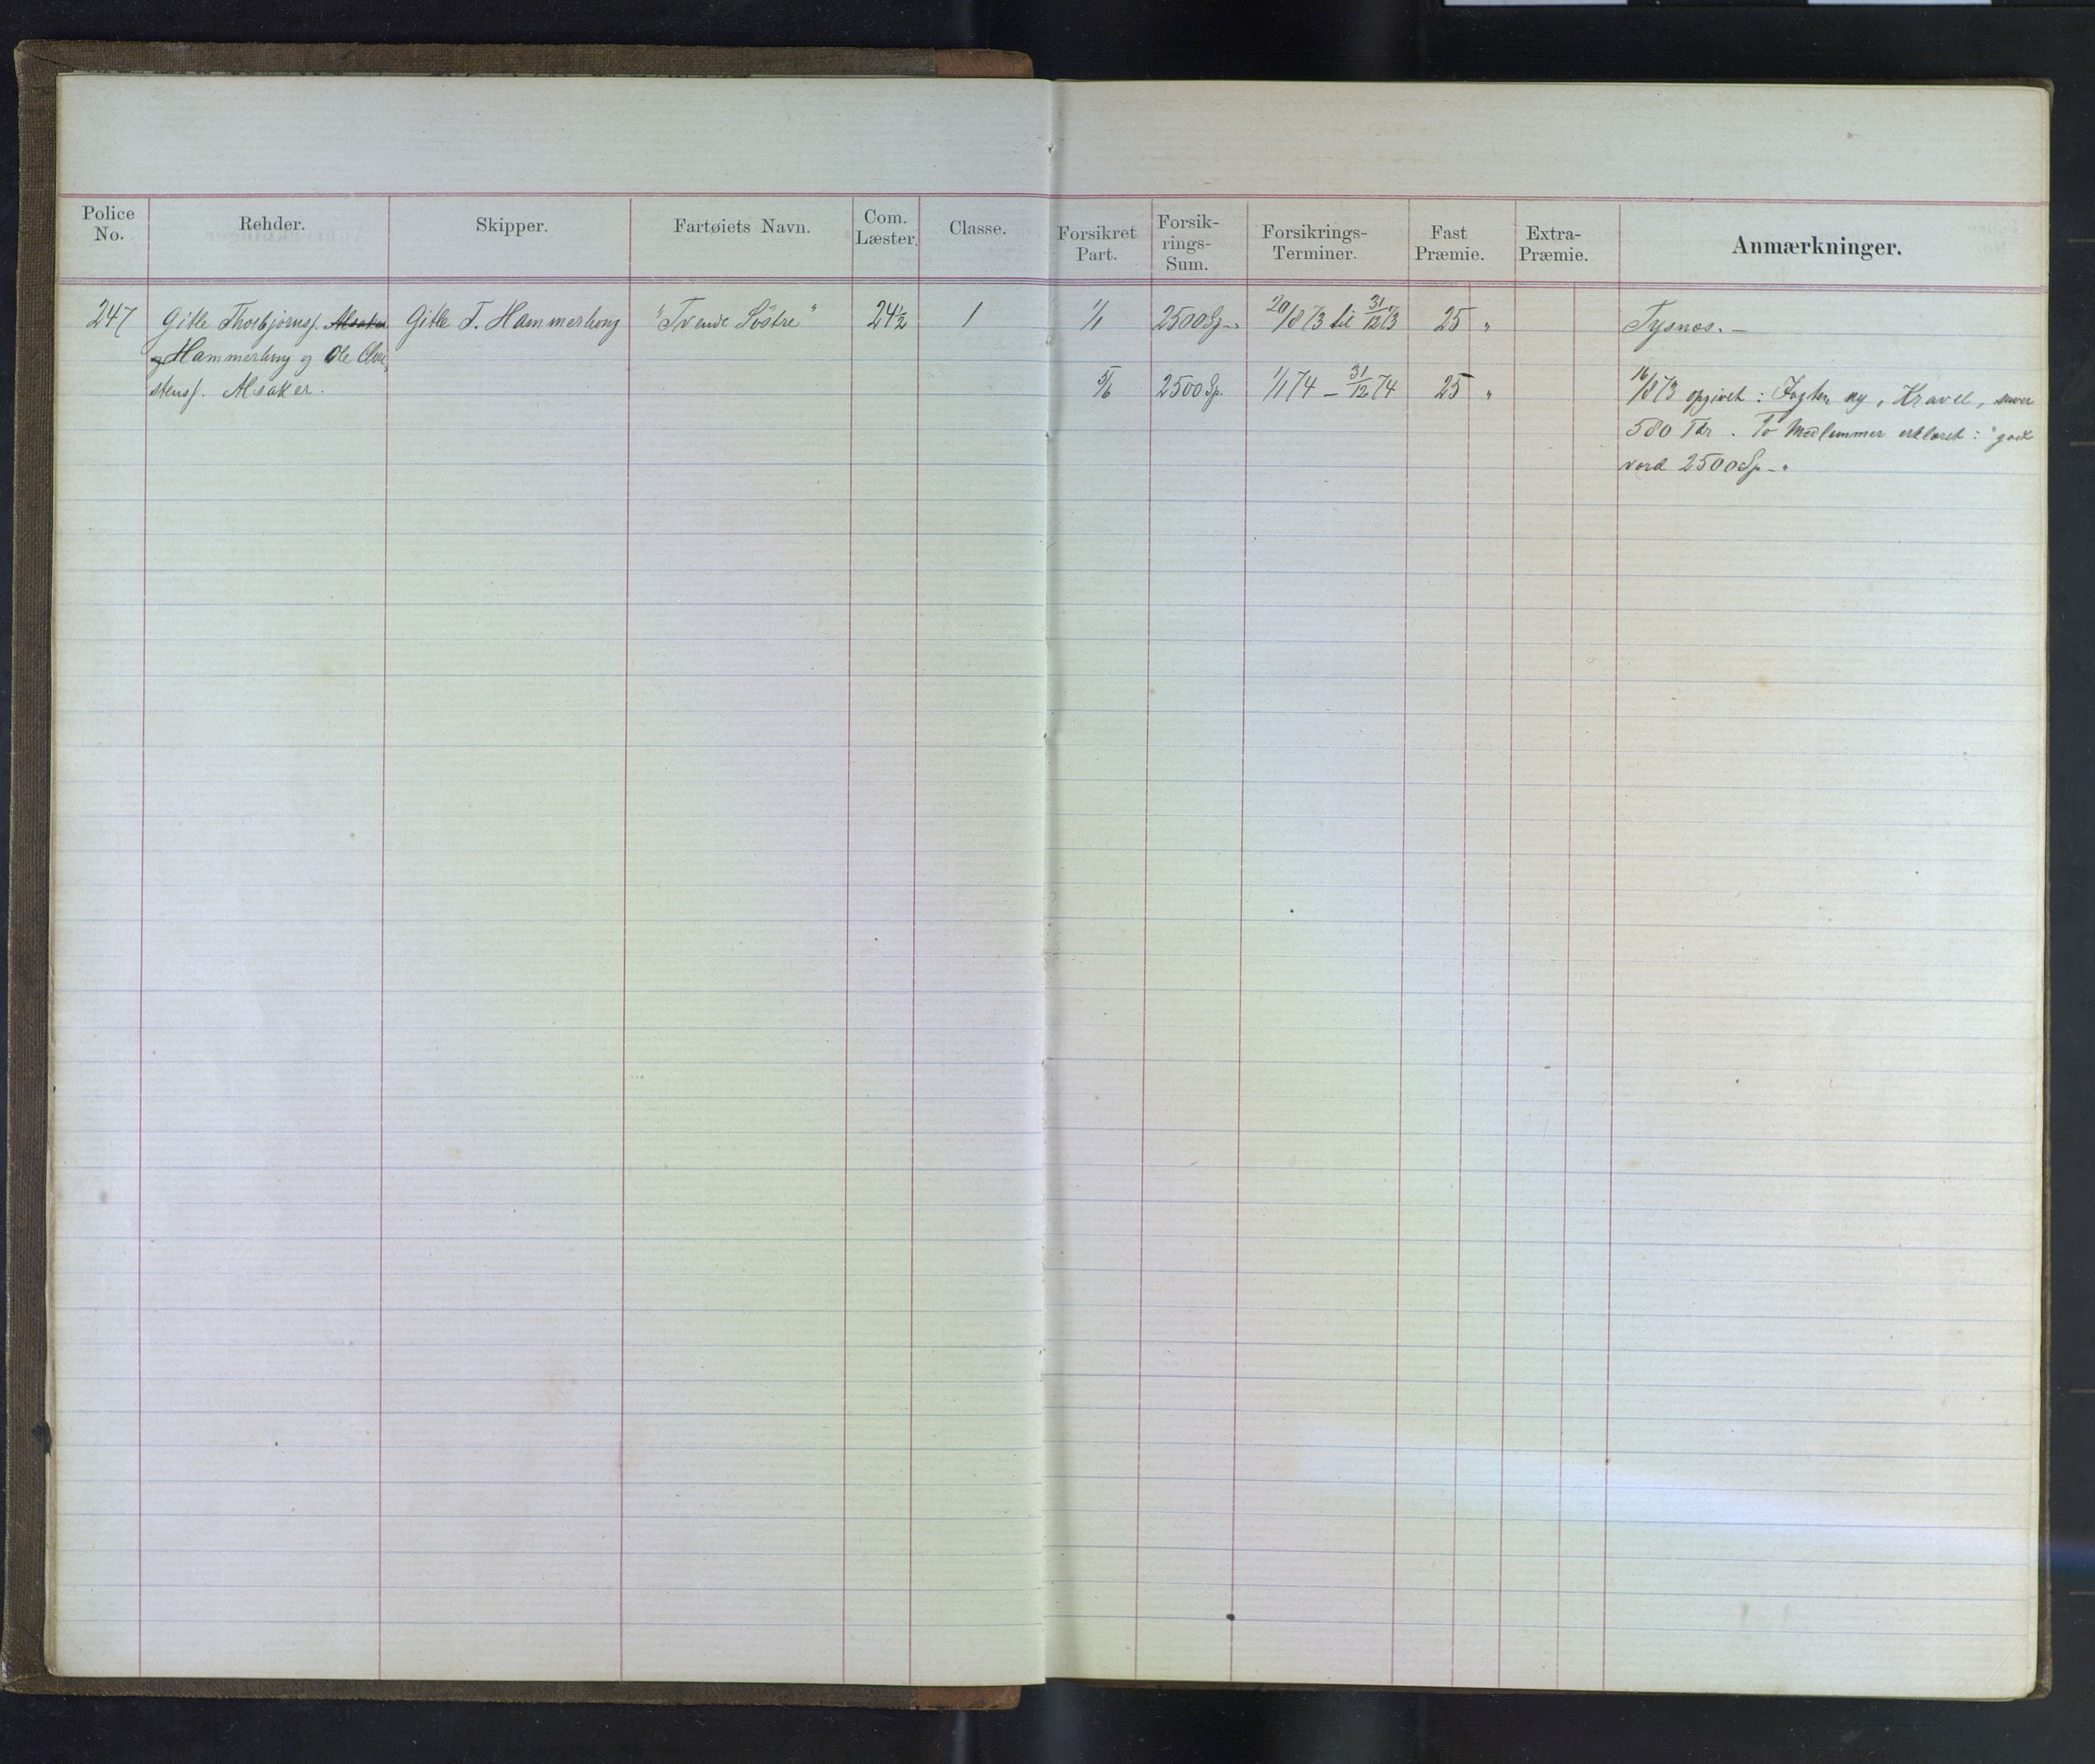 Police No.
Rehder.
Skipper.
Fartøiets Navn.
Com. Læster.
Classe.
Forsikret Part.
Forsik-rings-Sum.
Forsikrings-Terminer.
Fast Præmie.
Extra-Præmie.
Anmærkninger.
247 Gitle Thorbjørnss. Alsaker Gitle T. Hammerhoug "Tvende Søstre" 24½ 1 1/1 2500 Sp. 20/8 73 til 31/12 73 25 " Tysnæs. —
og Hammerhoug og Ole Chri-
stenss. Alsaker. 5/6 2500 Sp. 1/1 74 — 31/12 74 25 " 16/8 73 opgivet: Jagten ny, Kravel,
580 Tdr. To Medlemmer erklæret: "godt
værd 2500 Sp. "